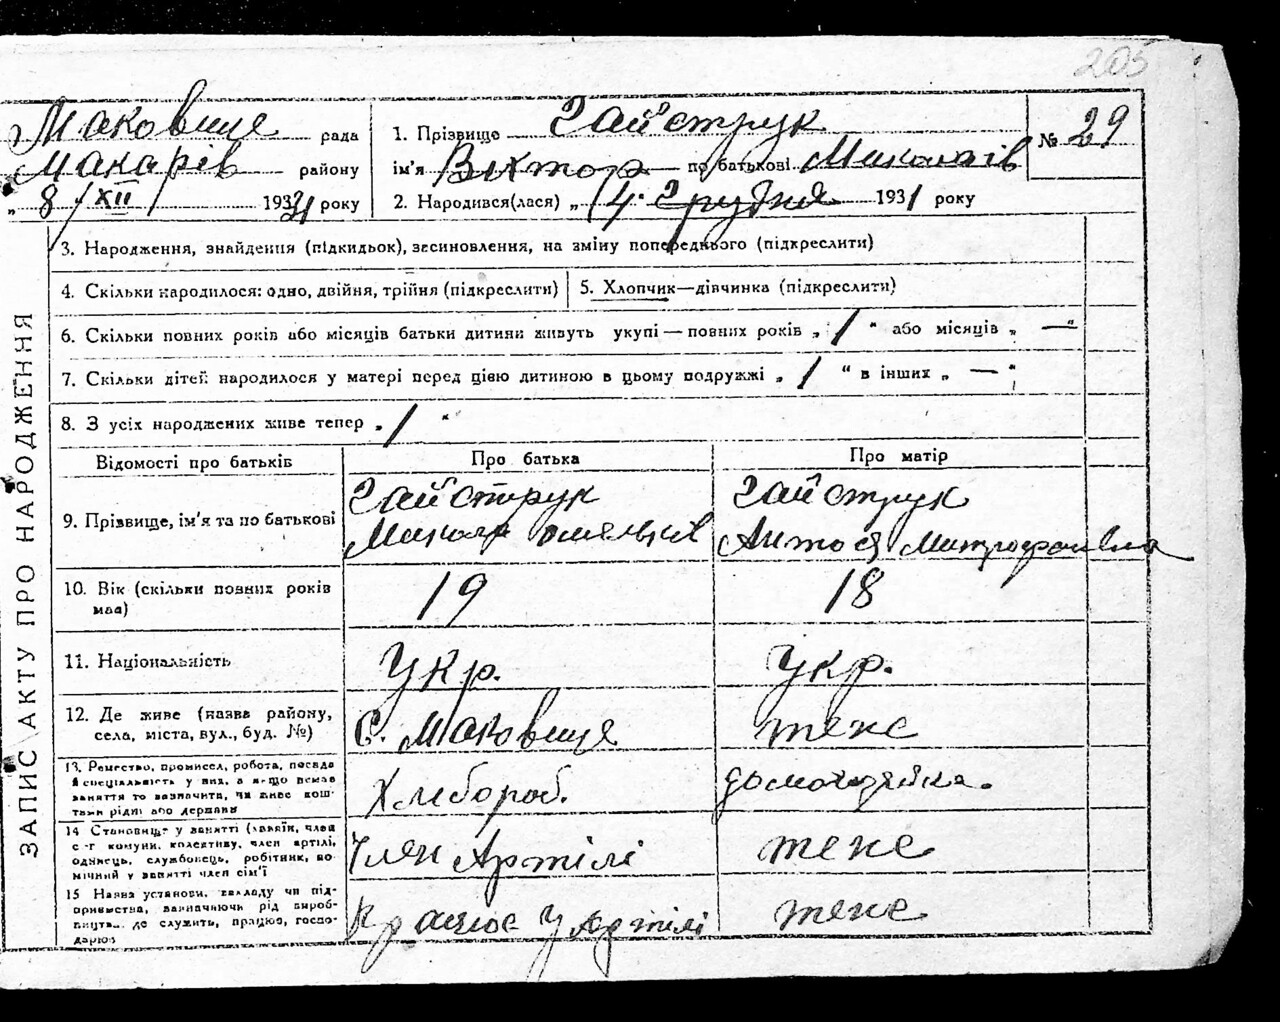 205
Маковище рада
Макарів району
„ 8 / XII 1931 року
1. Прізвище Гайструк
ім'я Віктор по батькові Миколаїв
№ 29
2. Народився(лася) „ 14. Грудня 1931 року
ЗАПИС АКТУ ПРО НАРОДЖЕННЯ
3. Народження, знайдення (підкидьок), зесиновлення, на зміну попереднього (підкреслити)
4. Скільки народилося: одно, двійня, трійня (підкреслити)
5. Хлопчик—дівчинка (підкреслити)
6. Скільки повних років або місяців батьки дитини живуть укупі — повних років „ 1 " або місяців „ — "
7. Скільки дітей народилося у матері перед цією дитиною в цьому подружжі „ 1 " в інших „ — "
8. З усіх народжених живе тепер „ 1 "
Відомості про батьків Про батька Про матір
9. Прізвище, ім'я та по батькові
Гайструк
Микола Омельків
Гайструк
Антося Митрофанівна
10. Вік (скільки повних років має)
19
18
11. Національність
Укр.
Укр.
12. Де живе (назва району,
села, міста, вул., буд. №)
С. Маковище
теке
13. Ремество, промисел, робота, посада
й спеціяльність у них, а якщо немає
заняття то зазначити, чи живе кош-
тами рідні або держави
Хлібороб.
домохазяйка.
14 Становище у занятті (хазяїн, член
с-г комуни, колективу, член артілі,
одинець, службовець, робітник, по-
мічний у занятті член сім'ї
Член Артілі
теке
15 Назва установи, закладу чи під-
приємства, зазначаючи рід вироб-
ництв., де служить, працює, госпо-
дарює
Працює У Артілі
теке